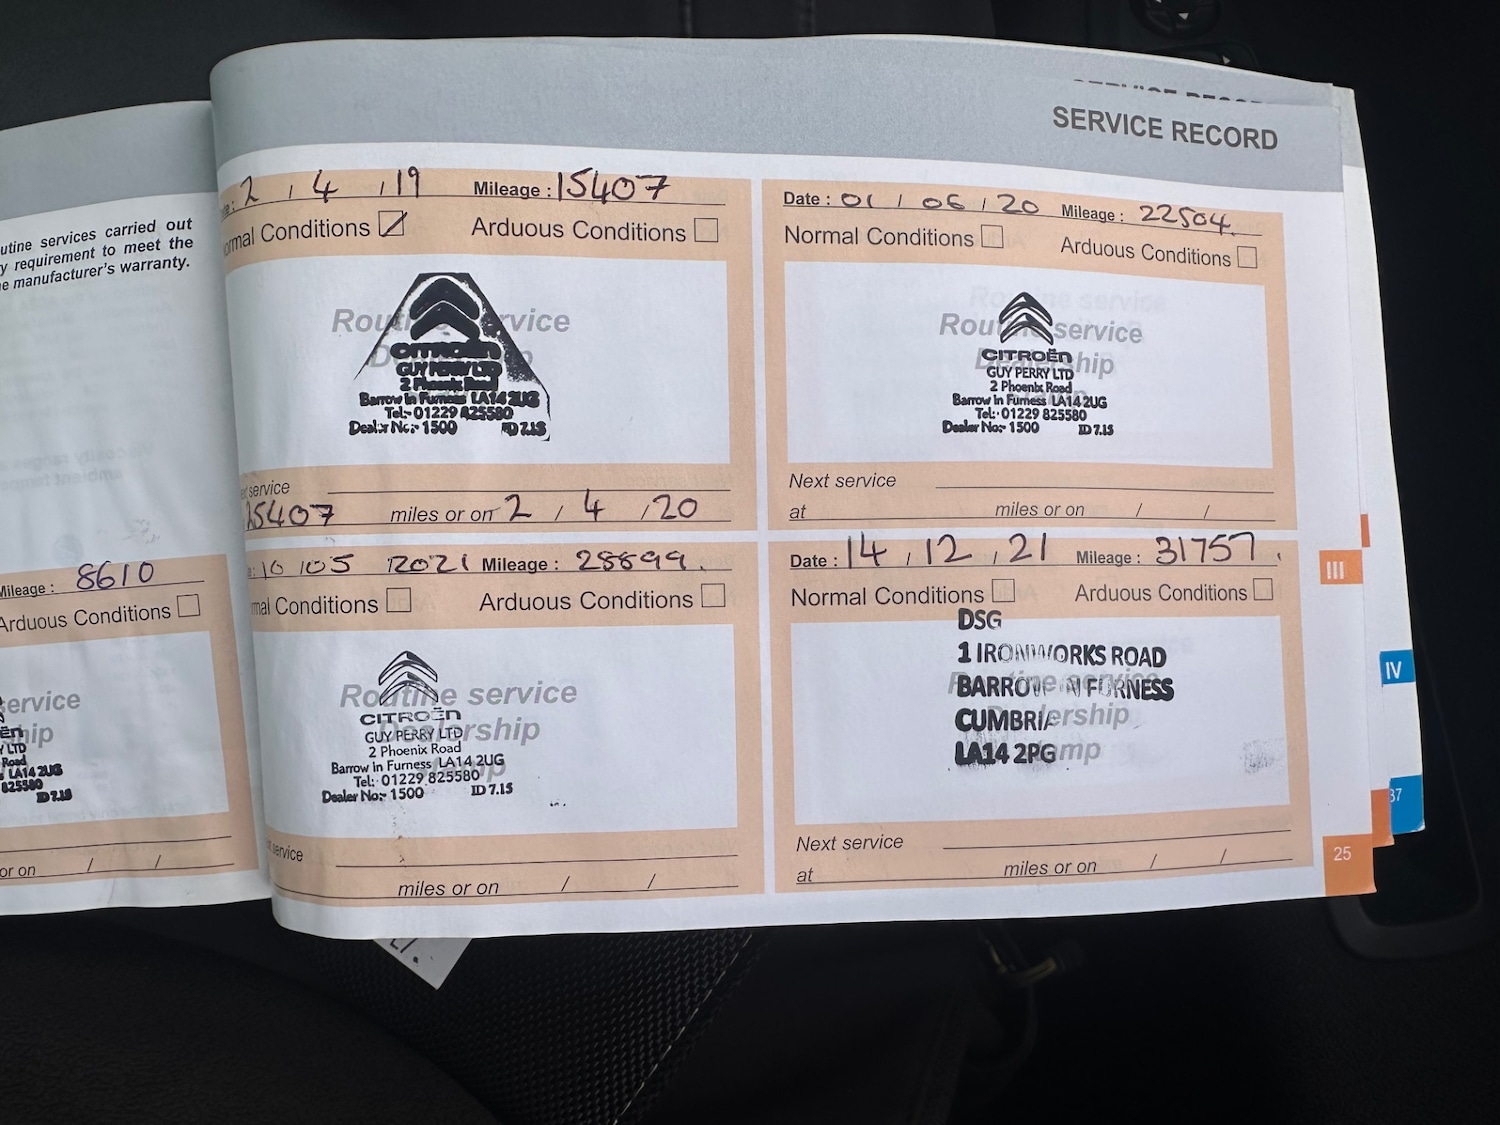 SERVICE RECORD
utine services carried out
y requirement to meet the
e manufacturer's warranty.
Mileage : 8610
Arduous Conditions
ervice
hip
ën
Y LTD
Road
LA14 2UG
825580
ID 7.15
or on / /
2 / 4 / 19 Mileage : 15407
ormal Conditions Arduous Conditions
Routine service
CITROËN
GUY PERRY LTD
2 Phoenix Road
Barrow in Furness LA14 2UG
Tel:- 01229 825580
Dealer No:- 1500 ID 7.15
service
25407 miles or on 2 / 4 / 20
Date : 01 / 06 / 20 Mileage : 22504.
Normal Conditions Arduous Conditions
Routine service
Dealership
CITROËN
GUY PERRY LTD
2 Phoenix Road
Barrow in Furness LA14 2UG
Tel:- 01229 825580
Dealer No:- 1500 ID 7.15
Next service
at miles or on / /
10 / 05 2021 Mileage : 28899.
mal Conditions Arduous Conditions
Routine service
Dealership
CITROËN
GUY PERRY LTD
2 Phoenix Road
Barrow in Furness LA14 2UG
Tel:- 01229 825580
Dealer No:- 1500 ID 7.15
service
miles or on / /
Date : 14 / 12 / 21 Mileage : 31757.
Normal Conditions Arduous Conditions
DSG
1 IRONWORKS ROAD
Routine service
BARROW IN FURNESS
Dealership
CUMBRIA
Stamp
LA14 2PG
Next service
at miles or on / /
III
IV
37
25